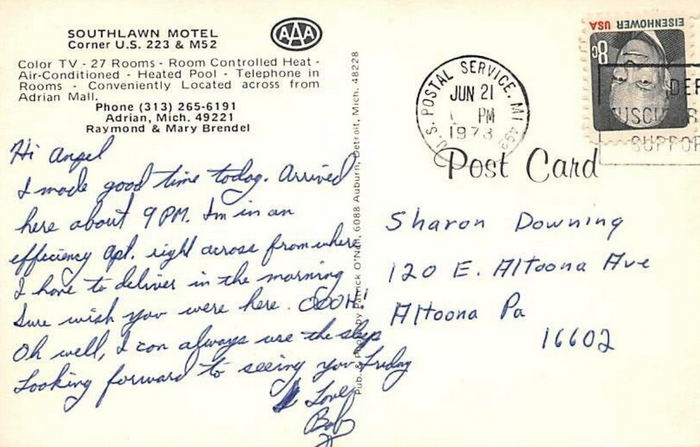 SOUTHLAWN MOTEL
Corner U.S. 223 & M52
AAA
Color TV - 27 Rooms - Room Controlled Heat -
Air-Conditioned - Heated Pool - Telephone in
Rooms - Conveniently Located across from
Adrian Mall.
Phone (313) 265-6191
Adrian, Mich. 49221
Raymond & Mary Brendel
Hi Angel
I made good time today. Arrived
here about 9 PM. Im in an
efficiency apt. right across from where
I have to deliver in the morning
Sure wish you were here. OOOH!
Oh well, I can always use the sleep
Looking forward to seeing you Friday
Love
Bob
Pub. by Patrick O'Neil, 6088 Auburn, Detroit, Mich. 48228
U.S. POSTAL SERVICE, MI
JUN 21
PM
1973
499
EISENHOWER USA
8c
SUPPOR
Post Card
Sharon Downing
120 E. Altoona Ave
Altoona Pa
16602